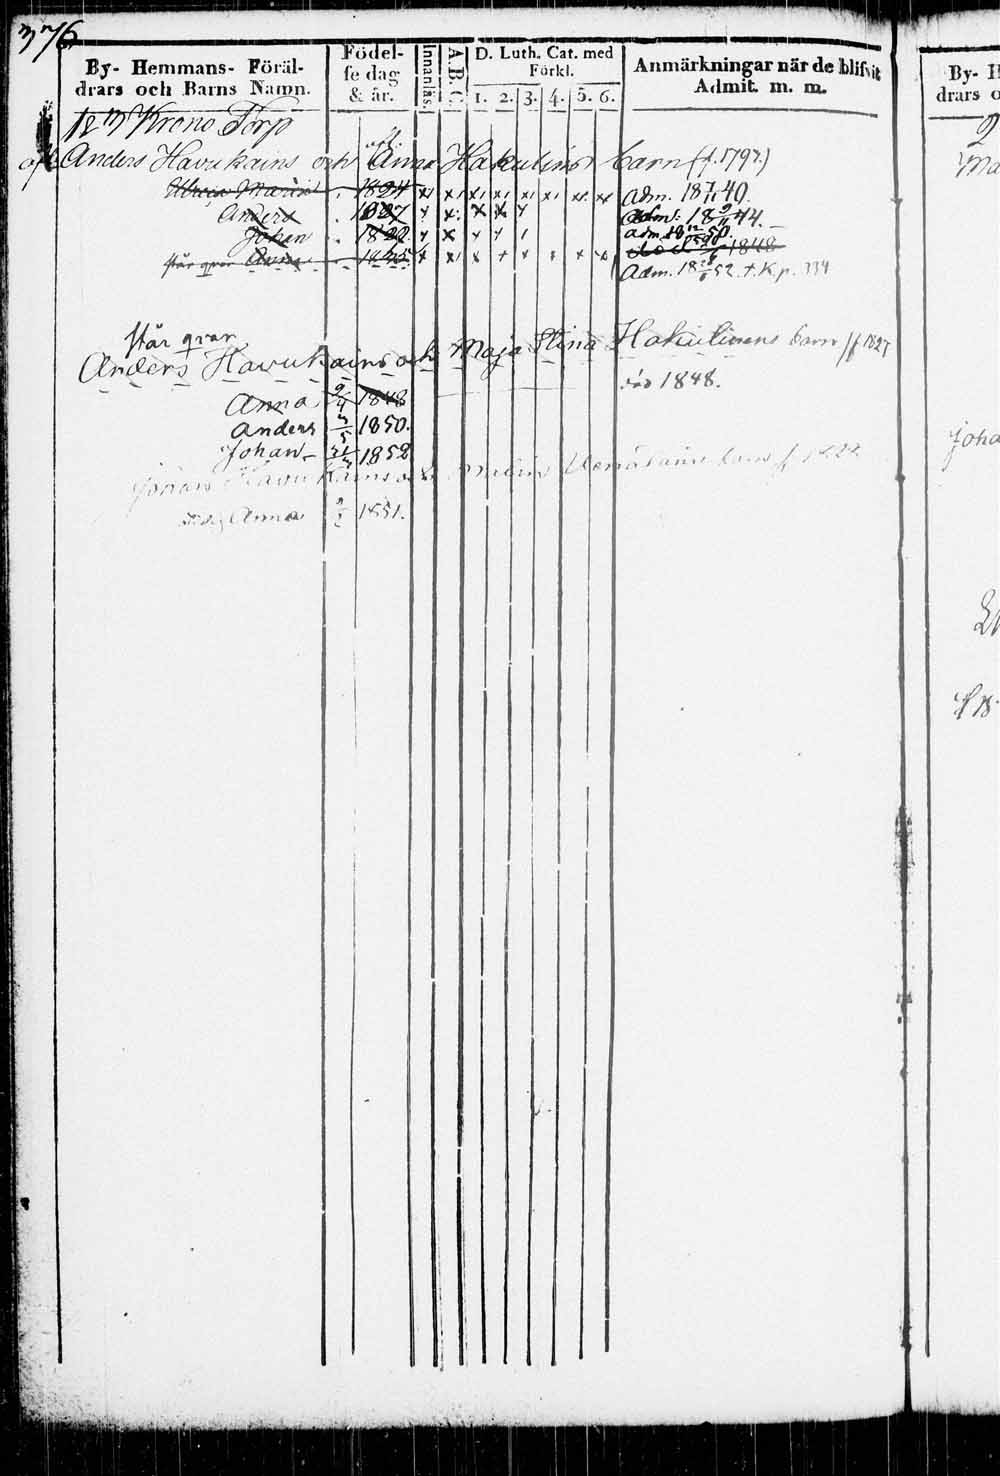 376
By- Hemmans- Föräl- drars och Barns Namn. Födel- se dag & år. Innanläs. A.B.C. D. Luth. Cat. med Förkl. 1. 2. 3. 4. 5. 6. Anmärkningar när de blifvit Admit. m. m.
12 m Krono Torp
afl. Anders Havukains och afl. Anna Hakulins barn (f. 1797.)
Ulrica Maria 1824 x x x x x x x x Adm. 18 49.
Anders 1827 x x x x x Adm. 18 9/11 44.
Johan 1829 x x x x adm. 18 50.
står qvar Anna 1835 x x x x x x x x 1848
Adm. 18 52. K. p. 334
står qvar
Anders Havukains och Maja Stina Hakulinens barn f 1827
död 1848.
Anna 9/4 1848
Anders 3/5 1850.
Johan 1852
Johan Havukains och barn f
Anna 1851.
By- H
drars o
Ma
Joha
f 18